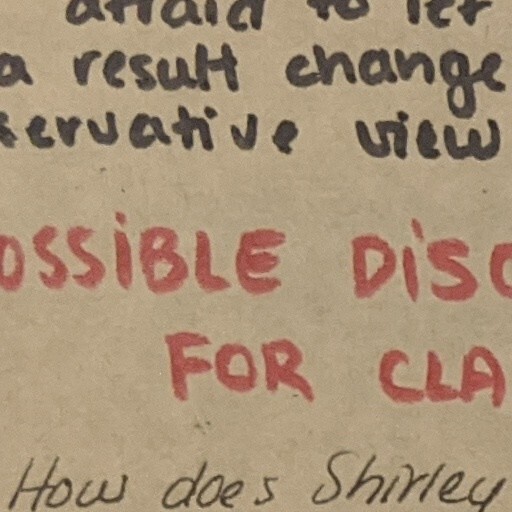 afraid to let
a result change
servative view
OSSiBLE DiSC
FOR CLA
How does Shirley